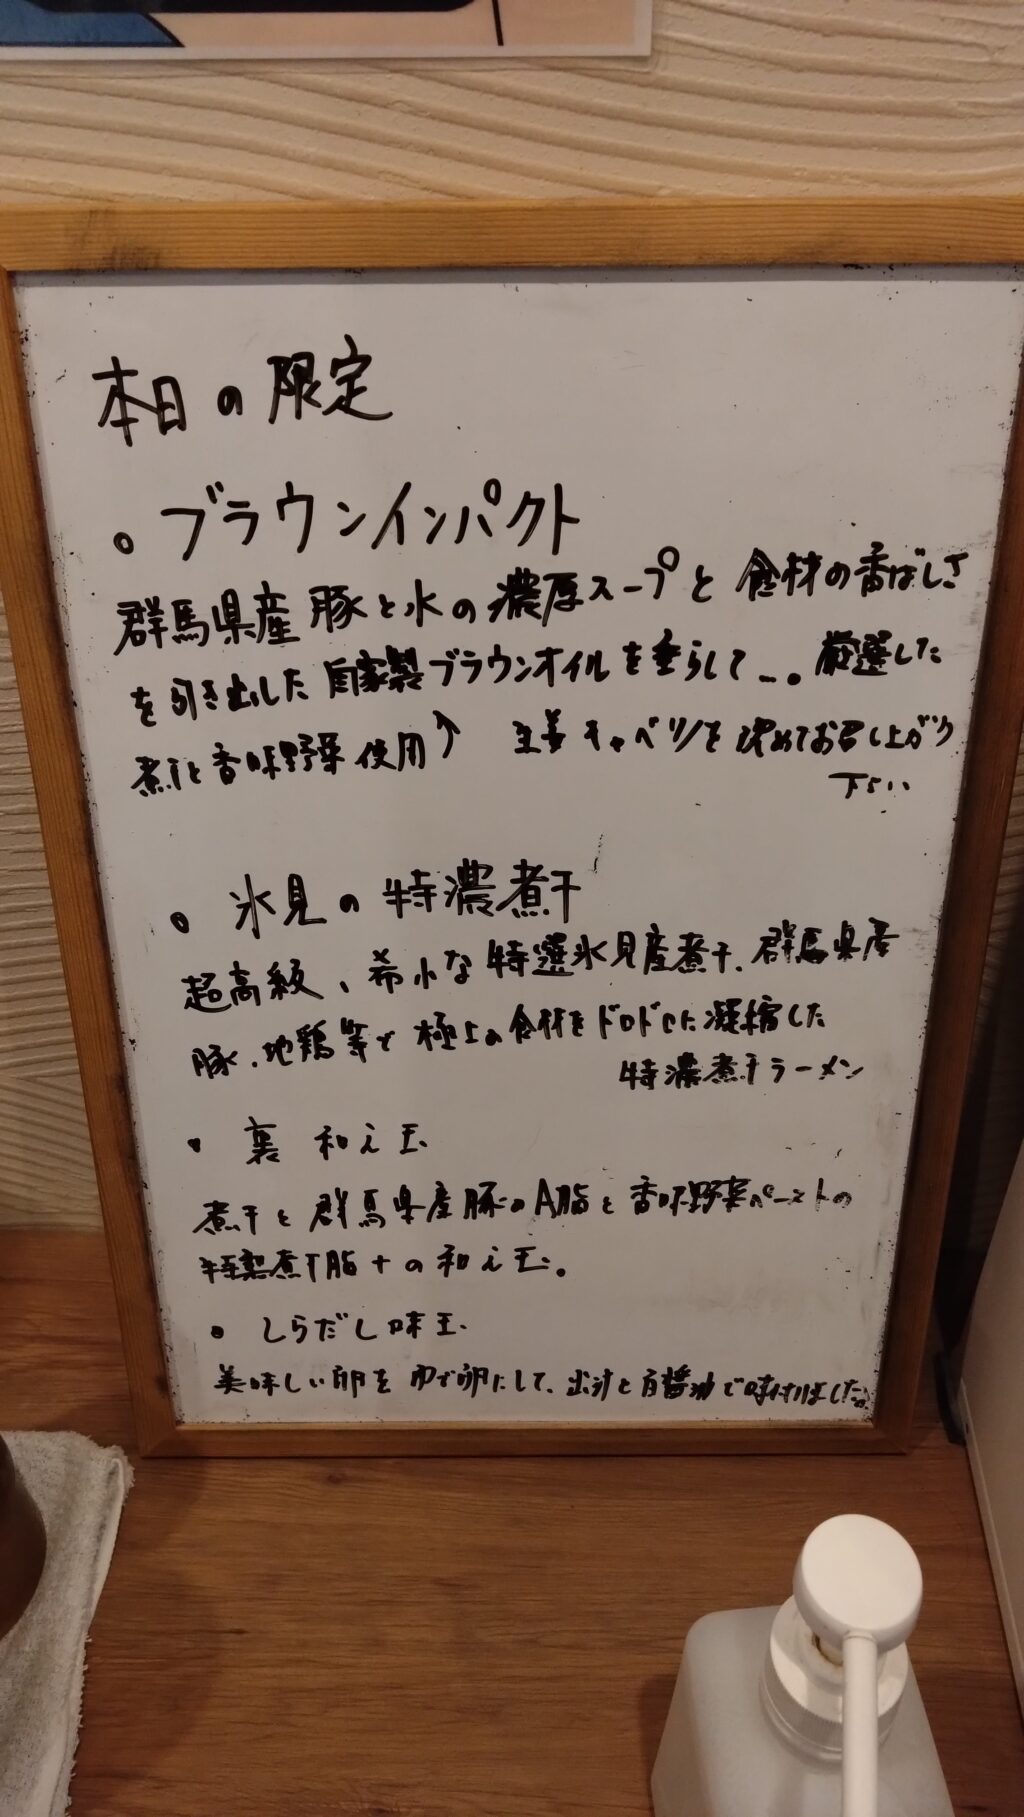 本日の限定
。ブラウンインパクト
群馬県産豚と水の濃厚スープと食材の香ばしさ
を引き出した自家製ブラウンオイルを垂らして…。厳選した
煮干と香味野菜使用↑ 生姜キャベツを決めてお召し上がり
下さい
。氷見の特濃煮干
超高級、希少な特選氷見産煮干、群馬県産
豚、地鶏等で極上の食材をドロドロに凝縮した
特濃煮干ラーメン
・裏 和え玉
煮干と群馬県産豚のA脂と香味野菜ペーストの
特製煮干脂+の和え玉。
・しらだし味玉
美味しい卵を 卵にして、出汁と白醤油で味付けました。